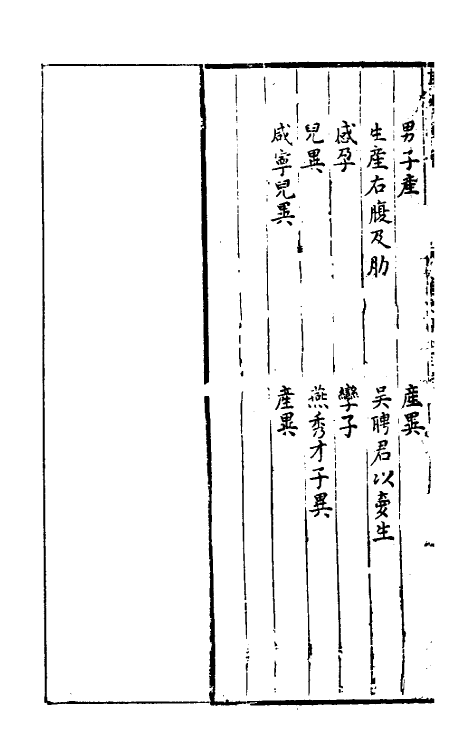 男子產
產異
生產右腹及肋
吳聘君以夢生
感孕
孿子
兒異
燕秀才子異
咸寧兒異
產異